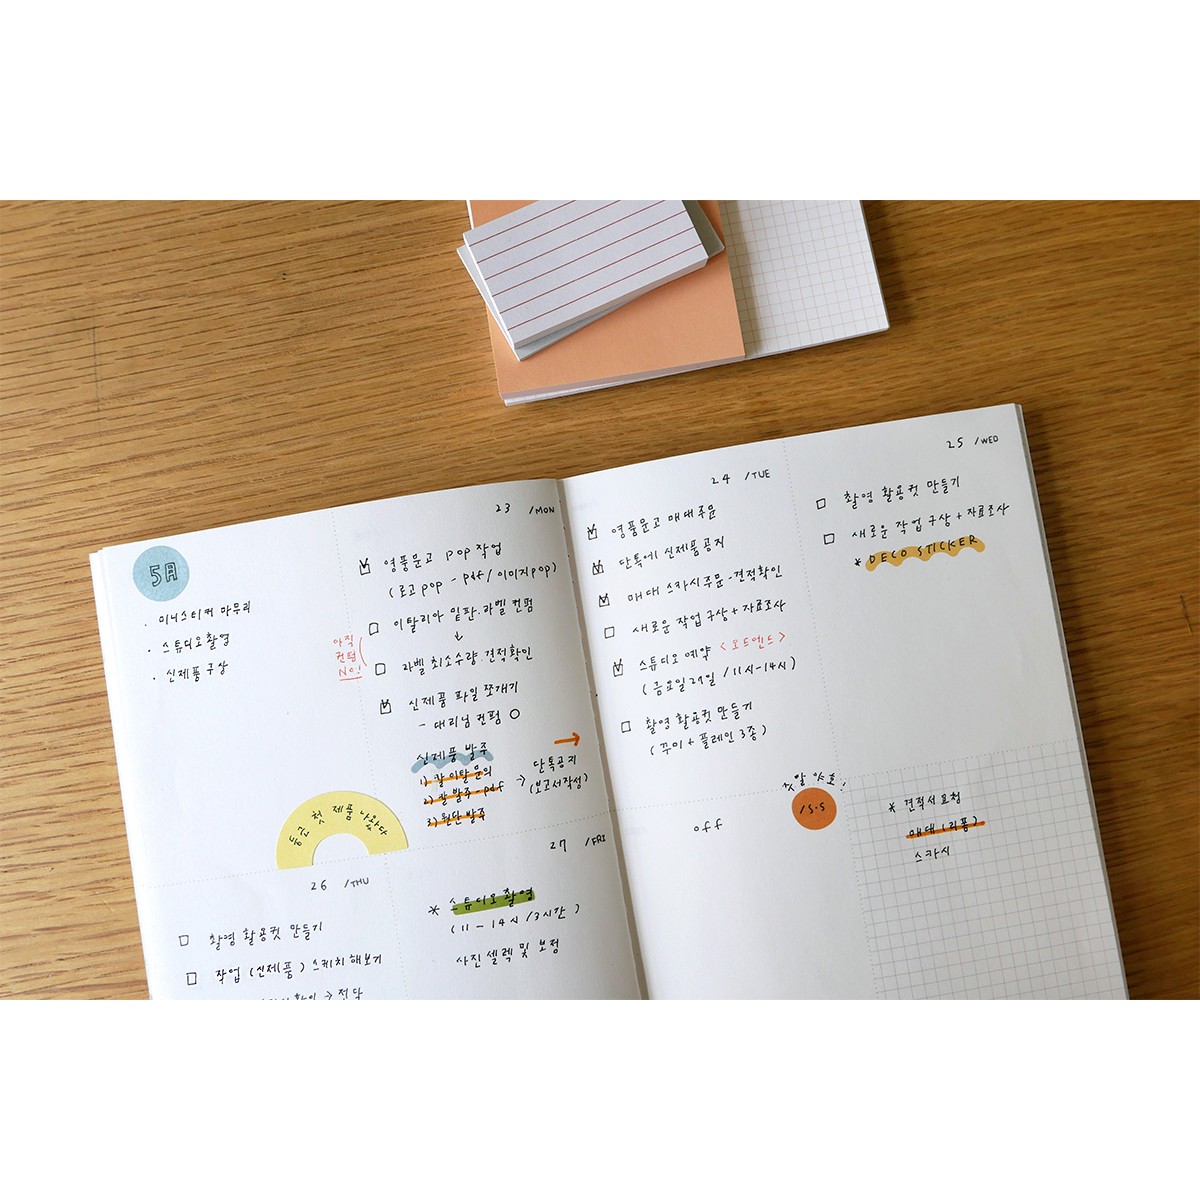 5月
· 미니스티커 마무리
· 스튜디오 촬영
· 신제품 구상
첫 제품 나왔다
23 /MON
영풍문고 pop 작업
(로고 pop - pdf / 이미지 pop)
이탈리아 밑판. 라벨 컨펌
↓
라벨 최소수량. 견적확인
아직
컨펌
No!
신제품 파일 쪼개기
- 대리님 컨펌 ○
신제품 발주
1) 칼 이탈 문의
2) 칼 발주 - pdf
3) 원단 발주
→ 단톡공지
(보고서작성)
24 /TUE
영풍문고 매대 주문
단톡에 신제품 공지
매대 스카시 주문 - 견적확인
새로운 작업 구상 + 자료조사
스튜디오 예약 <오드엔드>
(금요일 29일 / 11시-14시)
촬영 활용컷 만들기
(꾸미 + 플레인 3종)
25 /WED
촬영 활용컷 만들기
새로운 작업 구상 + 자료조사
* DECO STICKER
26 /THU
촬영 활용컷 만들기
작업 (신제품) 스케치 해보기
→ 전달
27 /FRI
* 스튜디오 촬영
(11 - 14시 / 3시간)
사진 셀렉 및 보정
off
* 견적서 요청
매대 (리폼)
스카시